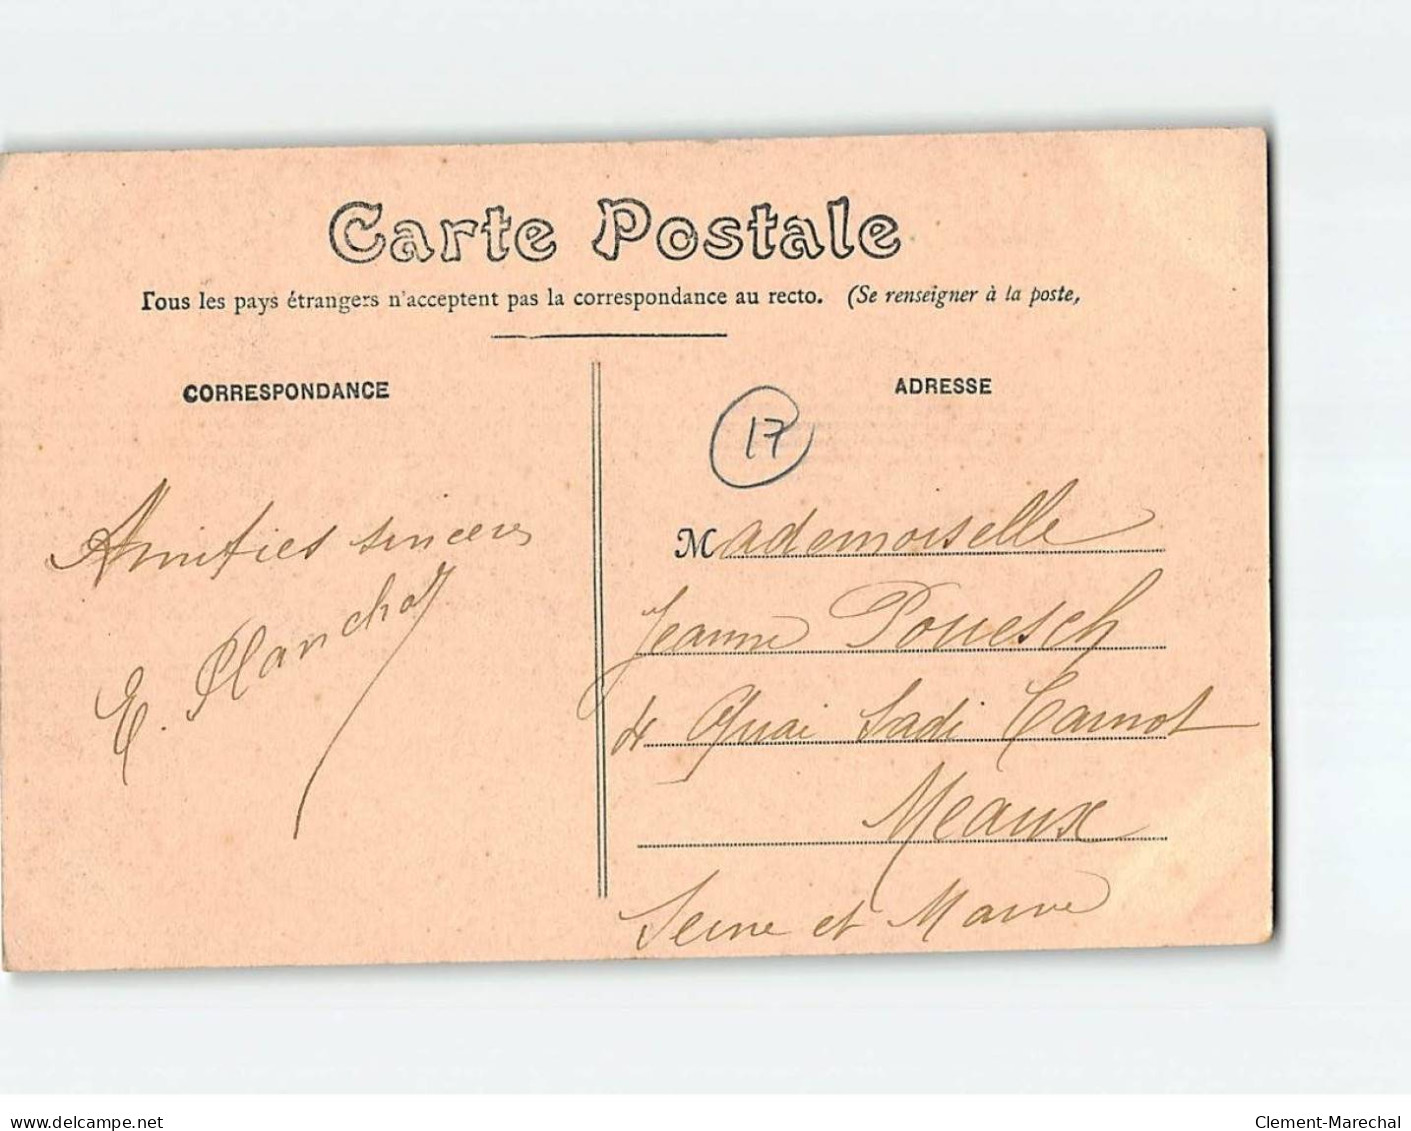 Carte Postale
Tous les pays étrangers n'acceptent pas la correspondance au recto. (Se renseigner à la poste,
CORRESPONDANCE
Amitiés sincères
E. Planchot
ADRESSE
17
Mademoiselle
Jeanne Pouesch
Quai Sadi Carnot
Meaux
Seine et Marne
delcampe.net
Clement-Marechal